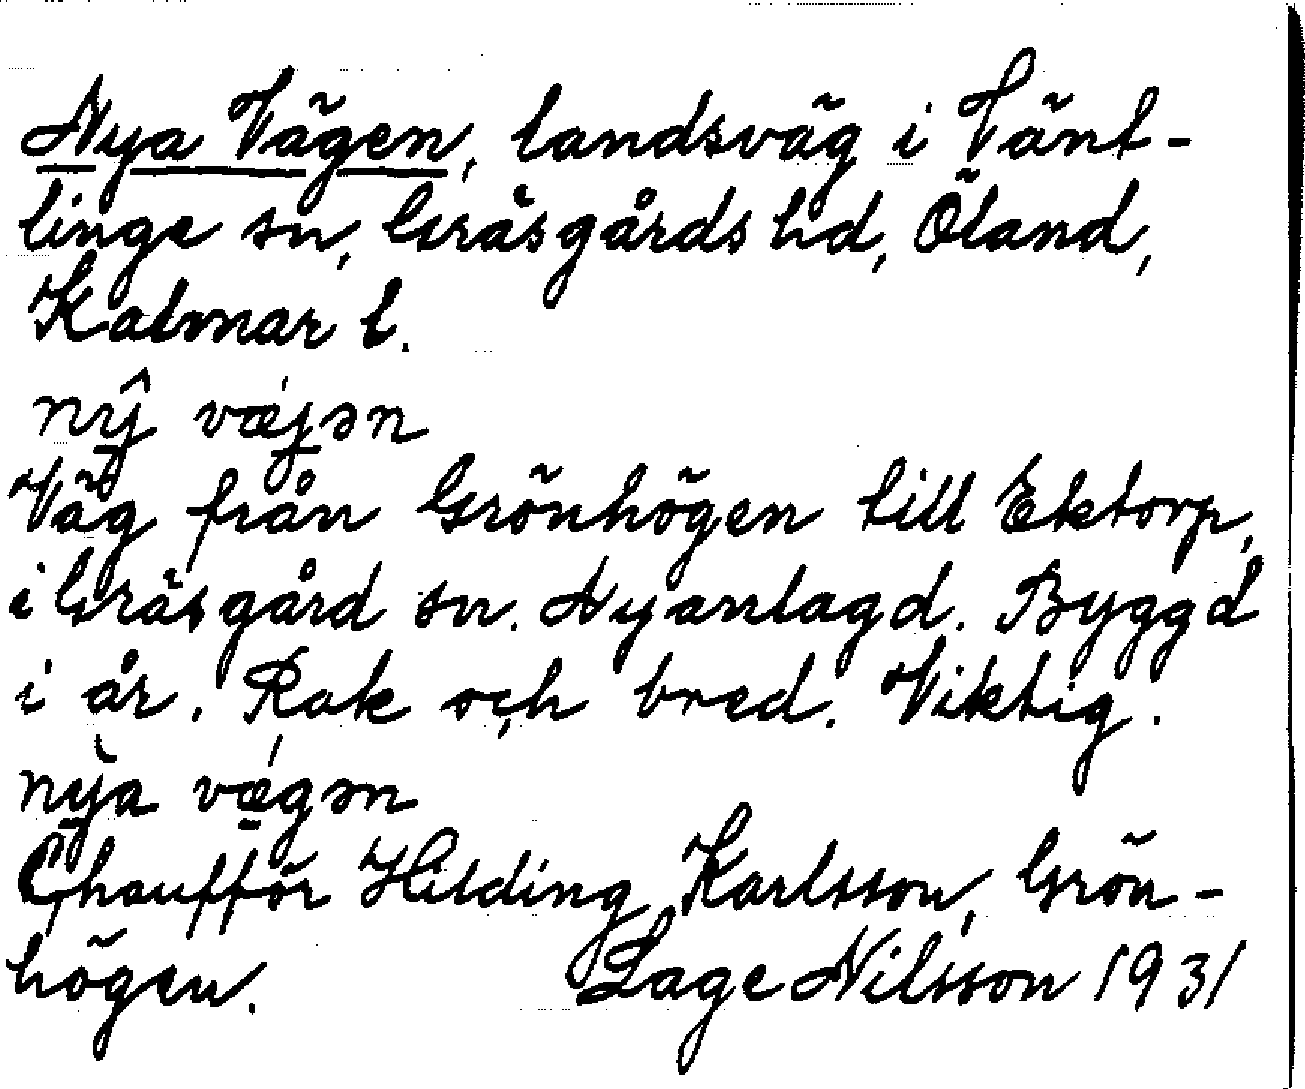 Nya Vägen, landsväg i Vänt-
linge sn, Gräsgårds hd, Öland,
Kalmar l.
nŷ vǽjən
Väg från Grönhögen till Ektorp,
i Gräsgård sn. Nyanlagd. Byggd
i år. Rak och bred. Viktig.
nỳa vǽgən
Chaufför Hilding Karlsson, Grön-
högen. Lage Nilsson 1931